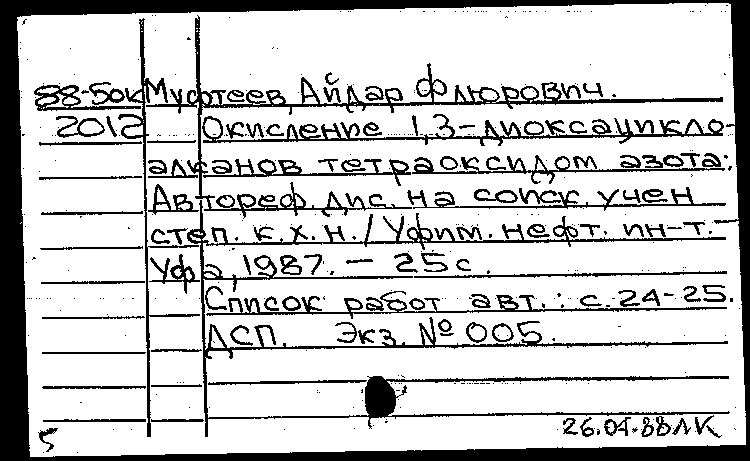 88-50к Муфтеев, Айдар Флюрович.
2012 Окисление 1,3-диоксацикло-
алканов тетраоксидом азота:
Автореф. дис. на соиск. учен
степ. к. х. н. / Уфим. нефт. ин-т. -
Уфа, 1987. - 25 с.
Список работ авт.: с. 24-25.
ДСП. Экз. № 005.
5